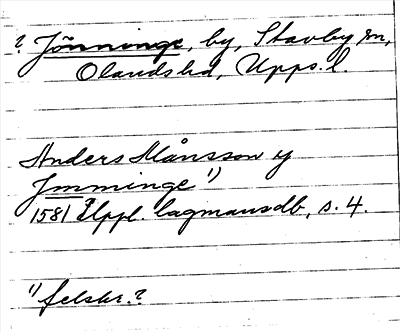 ? Jönninge, by, Stavby sn,
Olands hd, Upps. l.
Anders Månsson y
Jmminge 1)
1581 Uppl. lagmansdb, s. 4.
1) felskr.?